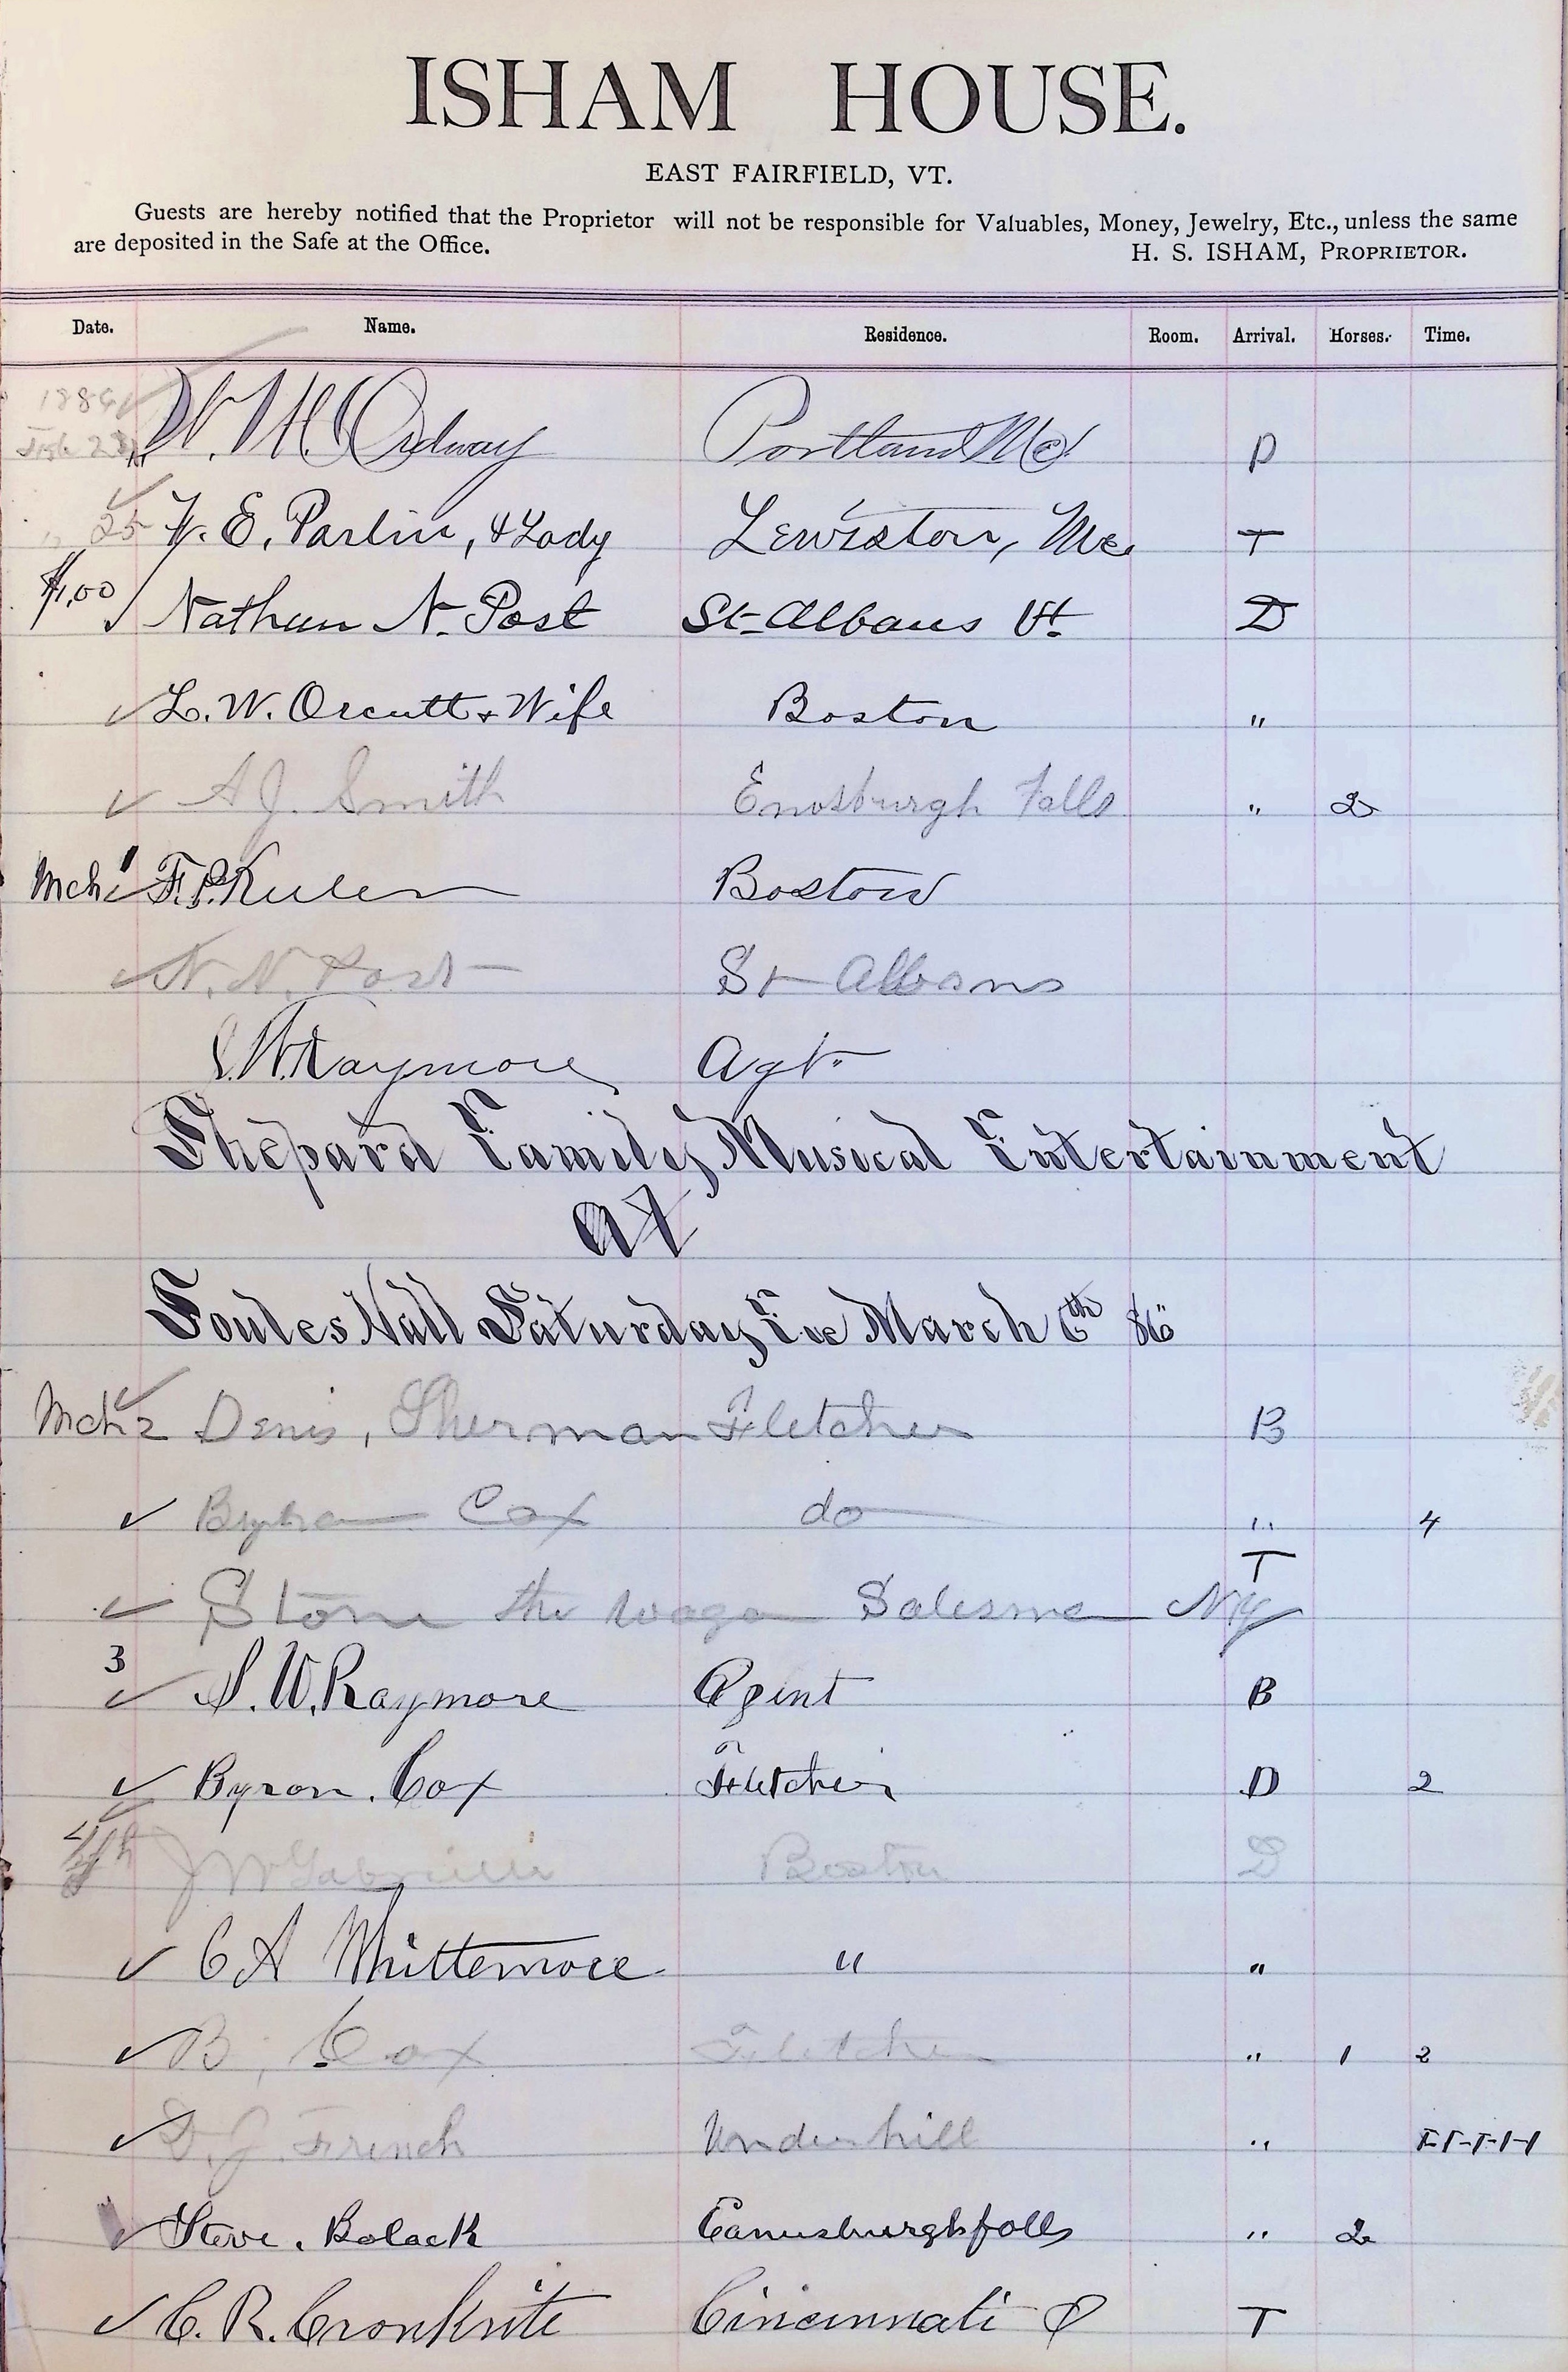 ISHAM HOUSE.
EAST FAIRFIELD, VT.
Guests are hereby notified that the Proprietor will not be responsible for Valuables, Money, Jewelry, Etc., unless the same
are deposited in the Safe at the Office. H. S. ISHAM, PROPRIETOR.
Date. Name. Residence. Room. Arrival. Horses. Time.
1886
Feb 23 W. H. Ordway Portland Me D
" 25 W. E. Parlin, & Lady Lewiston, Me. T
$1.00 Nathan N. Post St-Albans Vt. D
L. W. Orcutt & Wife Boston "
A J. Smith Enosburgh Falls " 2
Mch 1 F. P. Boston
N. N. Post St Albans
S. W. Raymore Agt.
Shepard Family Musical Entertainment
at
Soules Hall Saturday Eve March 6th 86
Mch 2 Denis, Sherman Fletcher B
Cox do " 4
T
Stone the wagon Salesman NY
3
S. W. Raymore Agent B
Byron. Cox Fletcher D 2
4th J W Boston D
C A Whittemore " "
B. Cox Fletcher " 1 2
D. J. French Underhill "
Steve. Bolack Eanusburgh falls " 2
C. R. Cronkrite Cincinnati O T